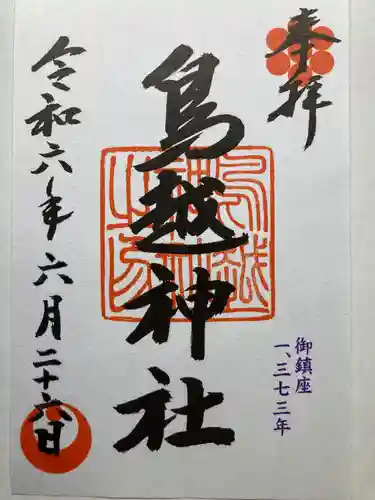 奉拝
鳥越神社
御鎮座
一、三七三年
令和六年六月二十六日